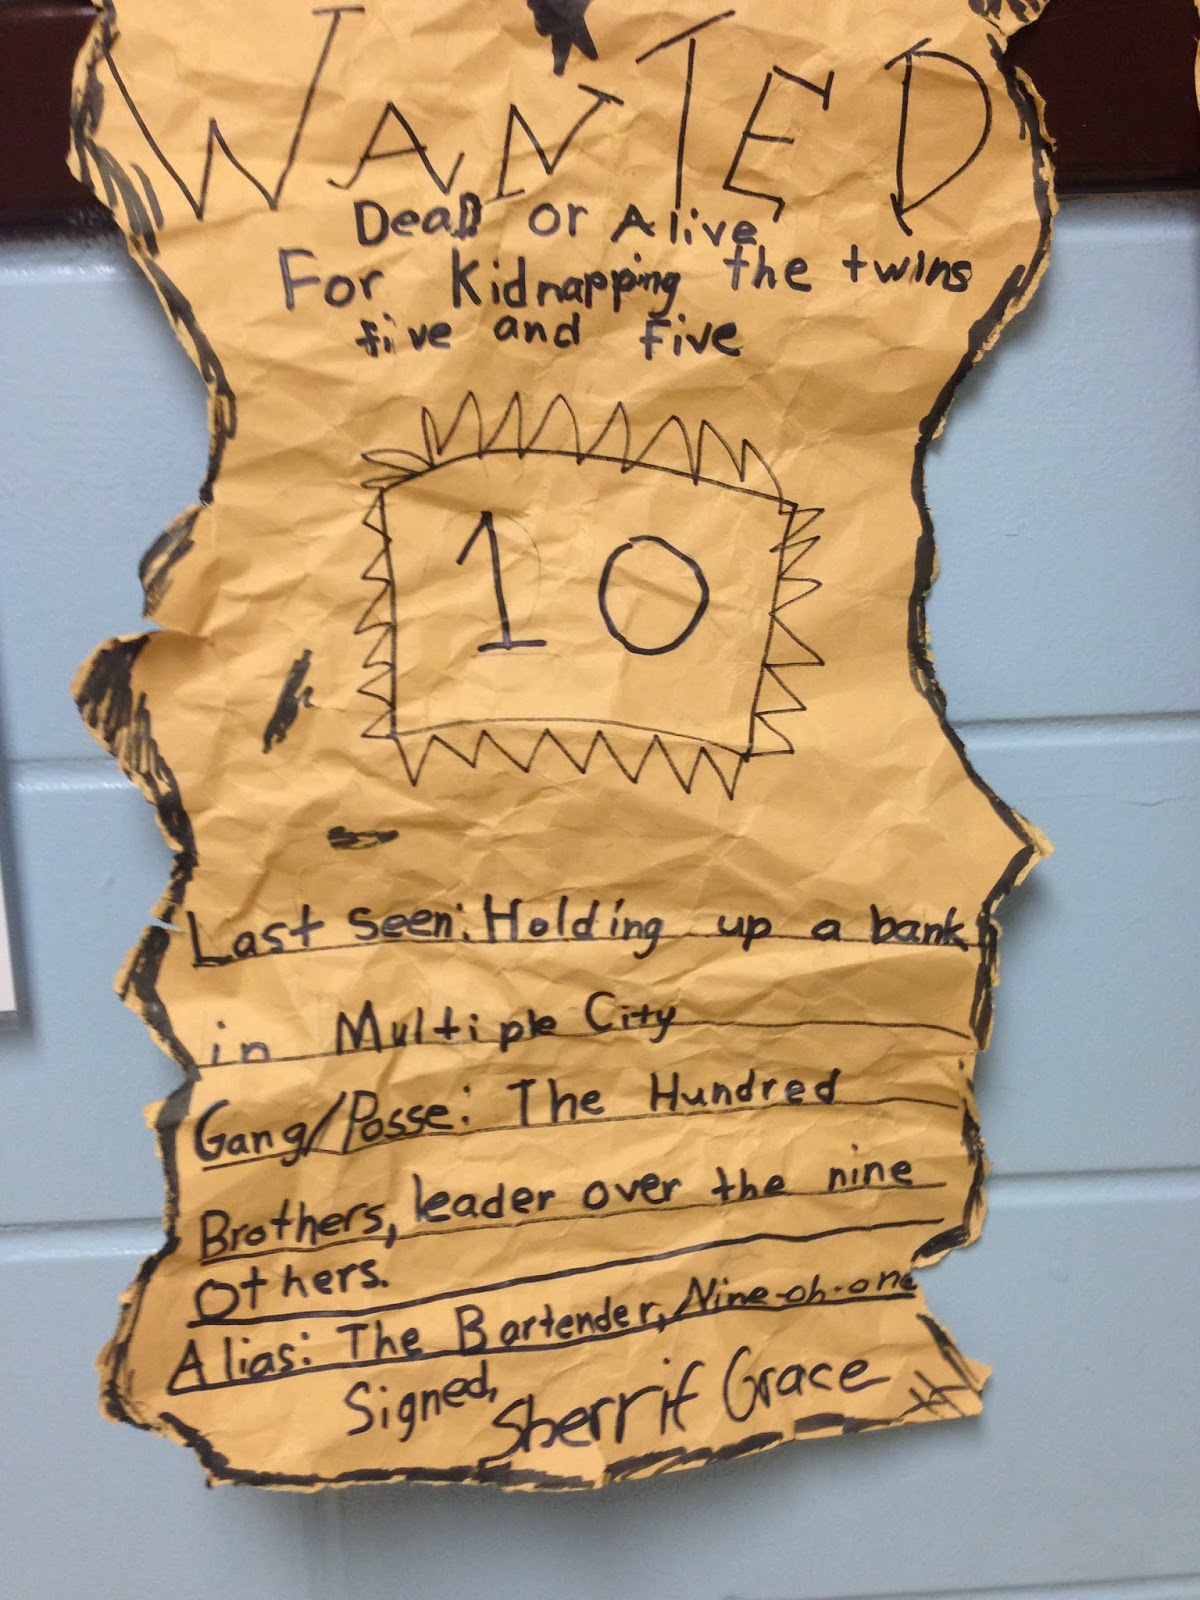 WANTED
Dead or Alive
For Kidnapping the twins
five and five
10
Last seen: Holding up a bank
in Multiple City
Gang/Posse: The Hundred
Brothers, leader over the nine
Others.
Alias: The Bartender, Nine-oh-one
Signed, Sherrif Grace